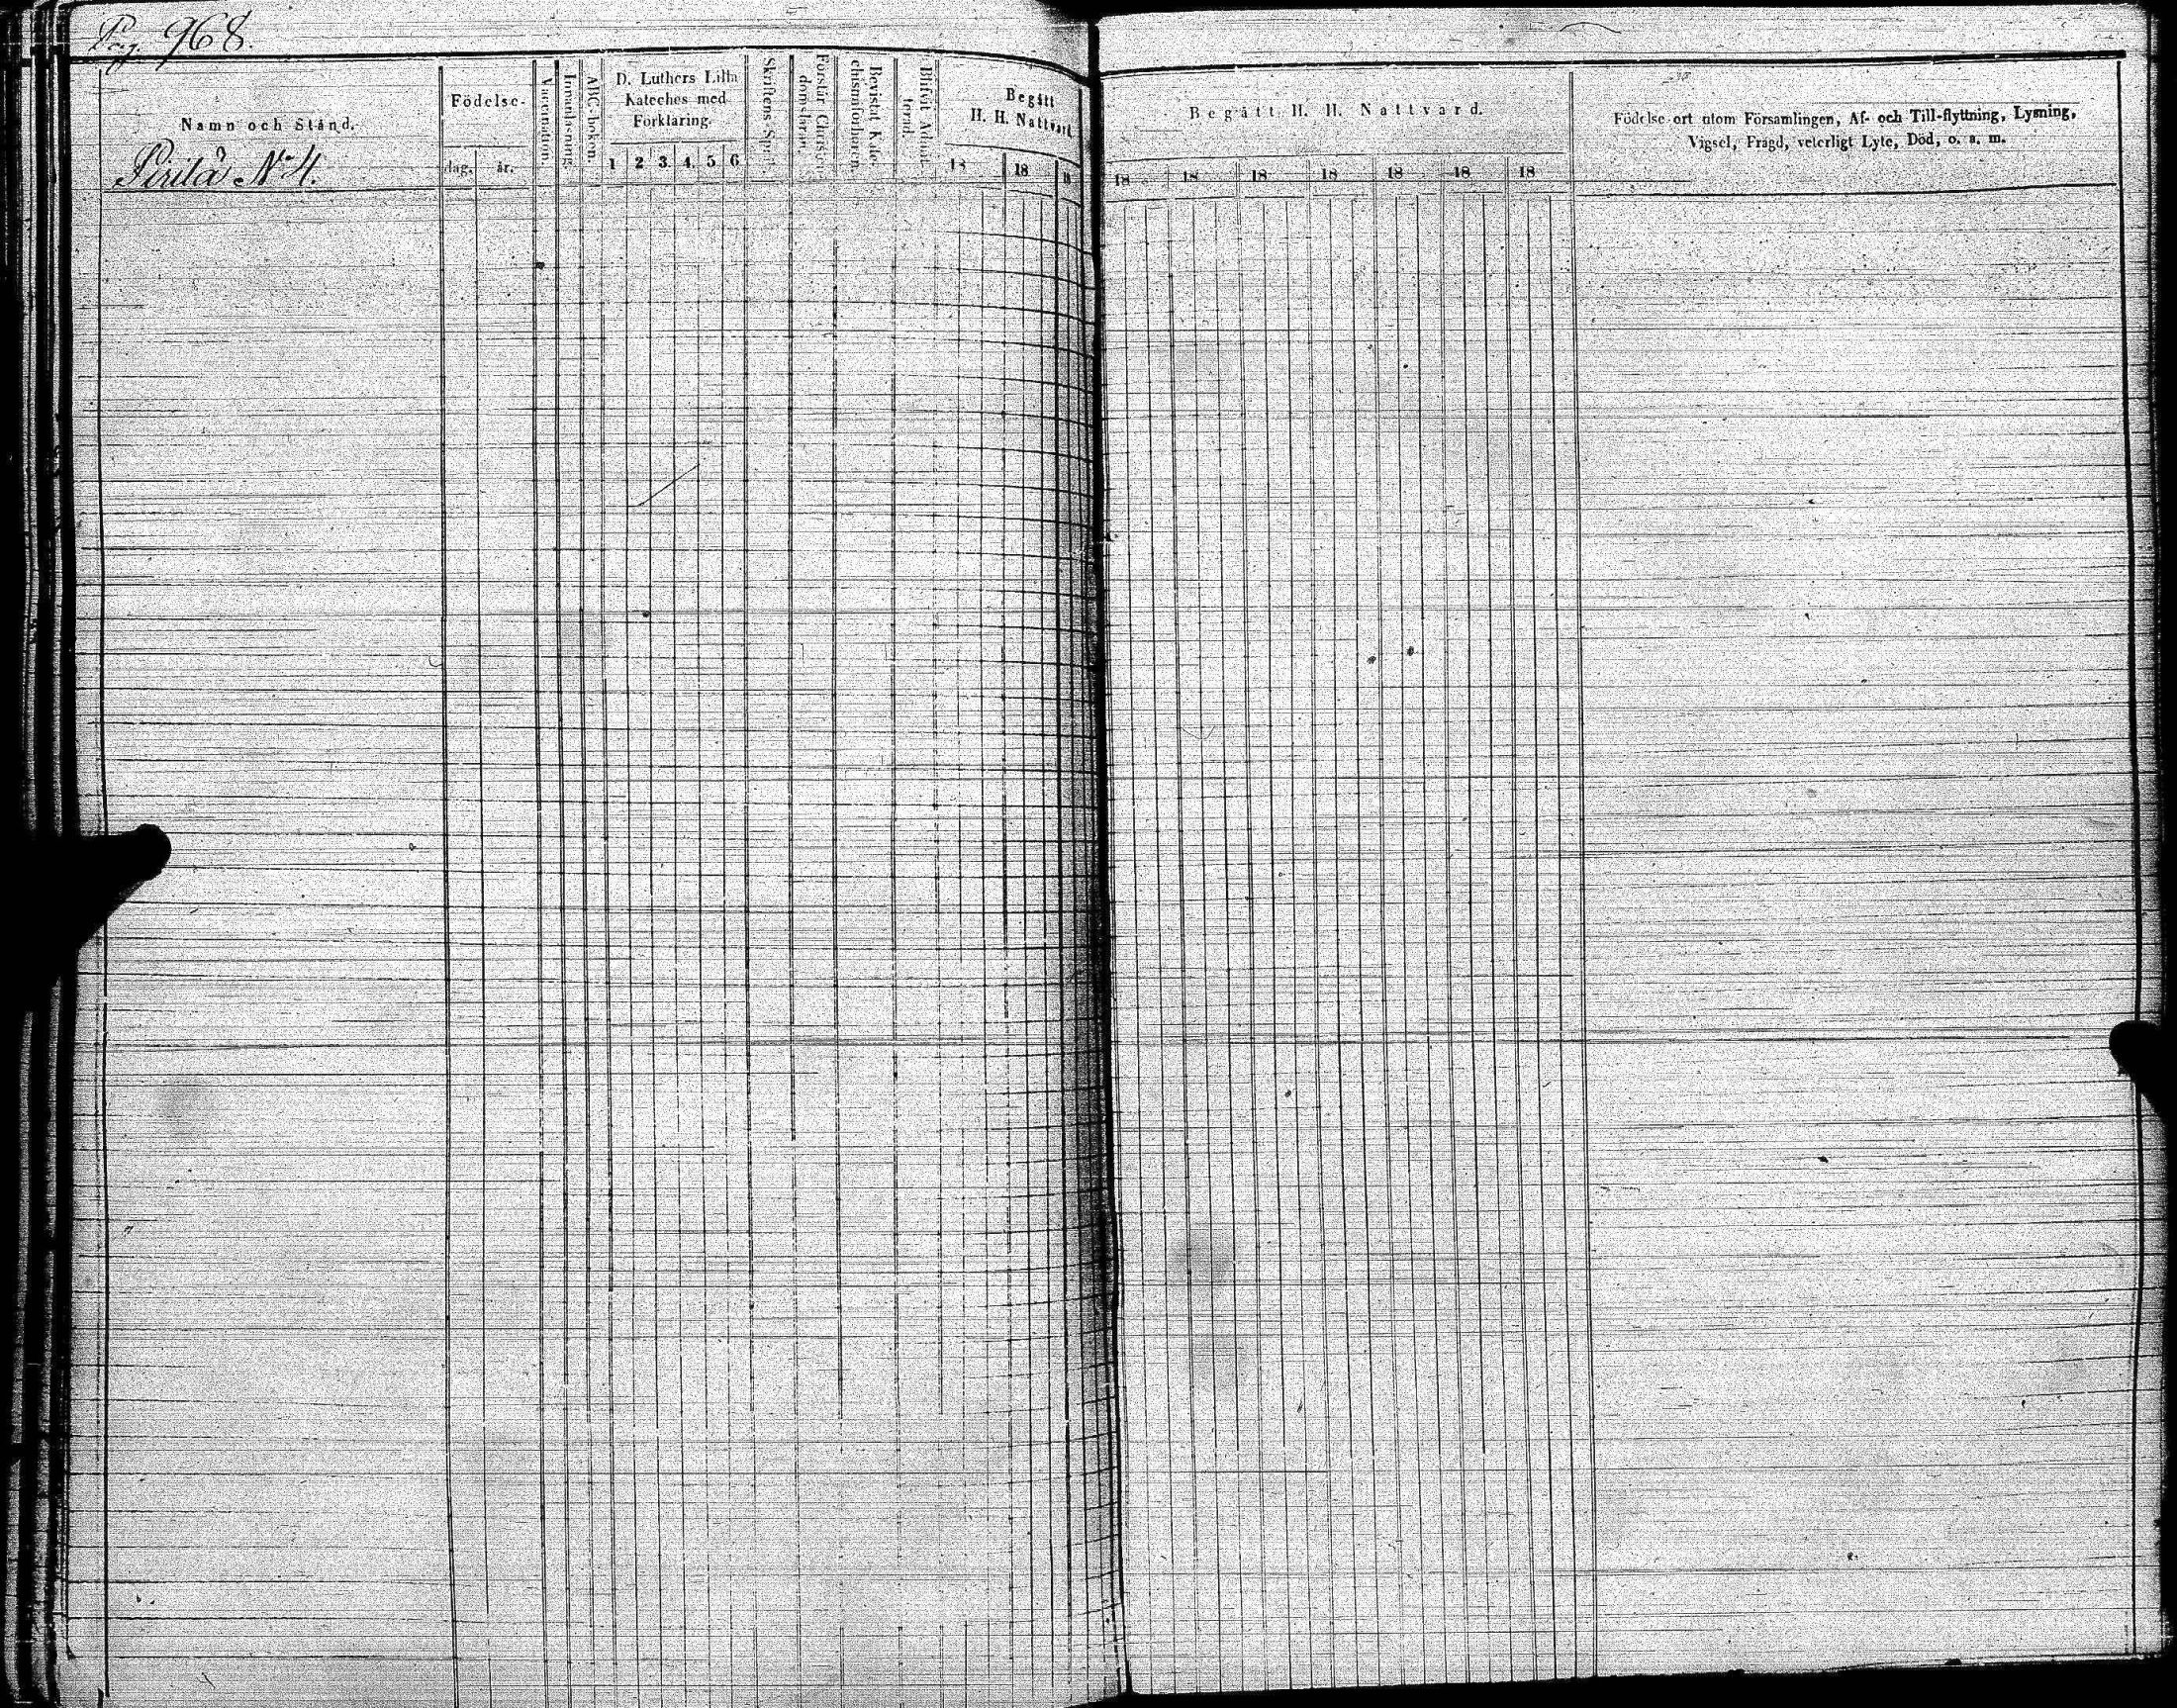 Pag. 968.
Namn och Stånd.
Pirilä N:o 4.
Födelse-
dag. år.
Vaccination.
Innanläsning.
ABC-boken.
D. Luthers Lilla
Kateches med
Förklaring.
1 2 3. 4. 5 6
Skriftens Språk.
Förstår Christen-
domsläran.
Bevistat Kate-
chismiförhören.
Blifvit Admit-
terad.
Begått
H. H. Nattvard.
18 18 18
Begått H. H. Nattvard.
18 18 18 18 18 18 18
Födelse-ort utom Församlingen, Af- och Till-flyttning, Lysning,
Vigsel, Frägd, veterligt Lyte, Död, o. s. m.